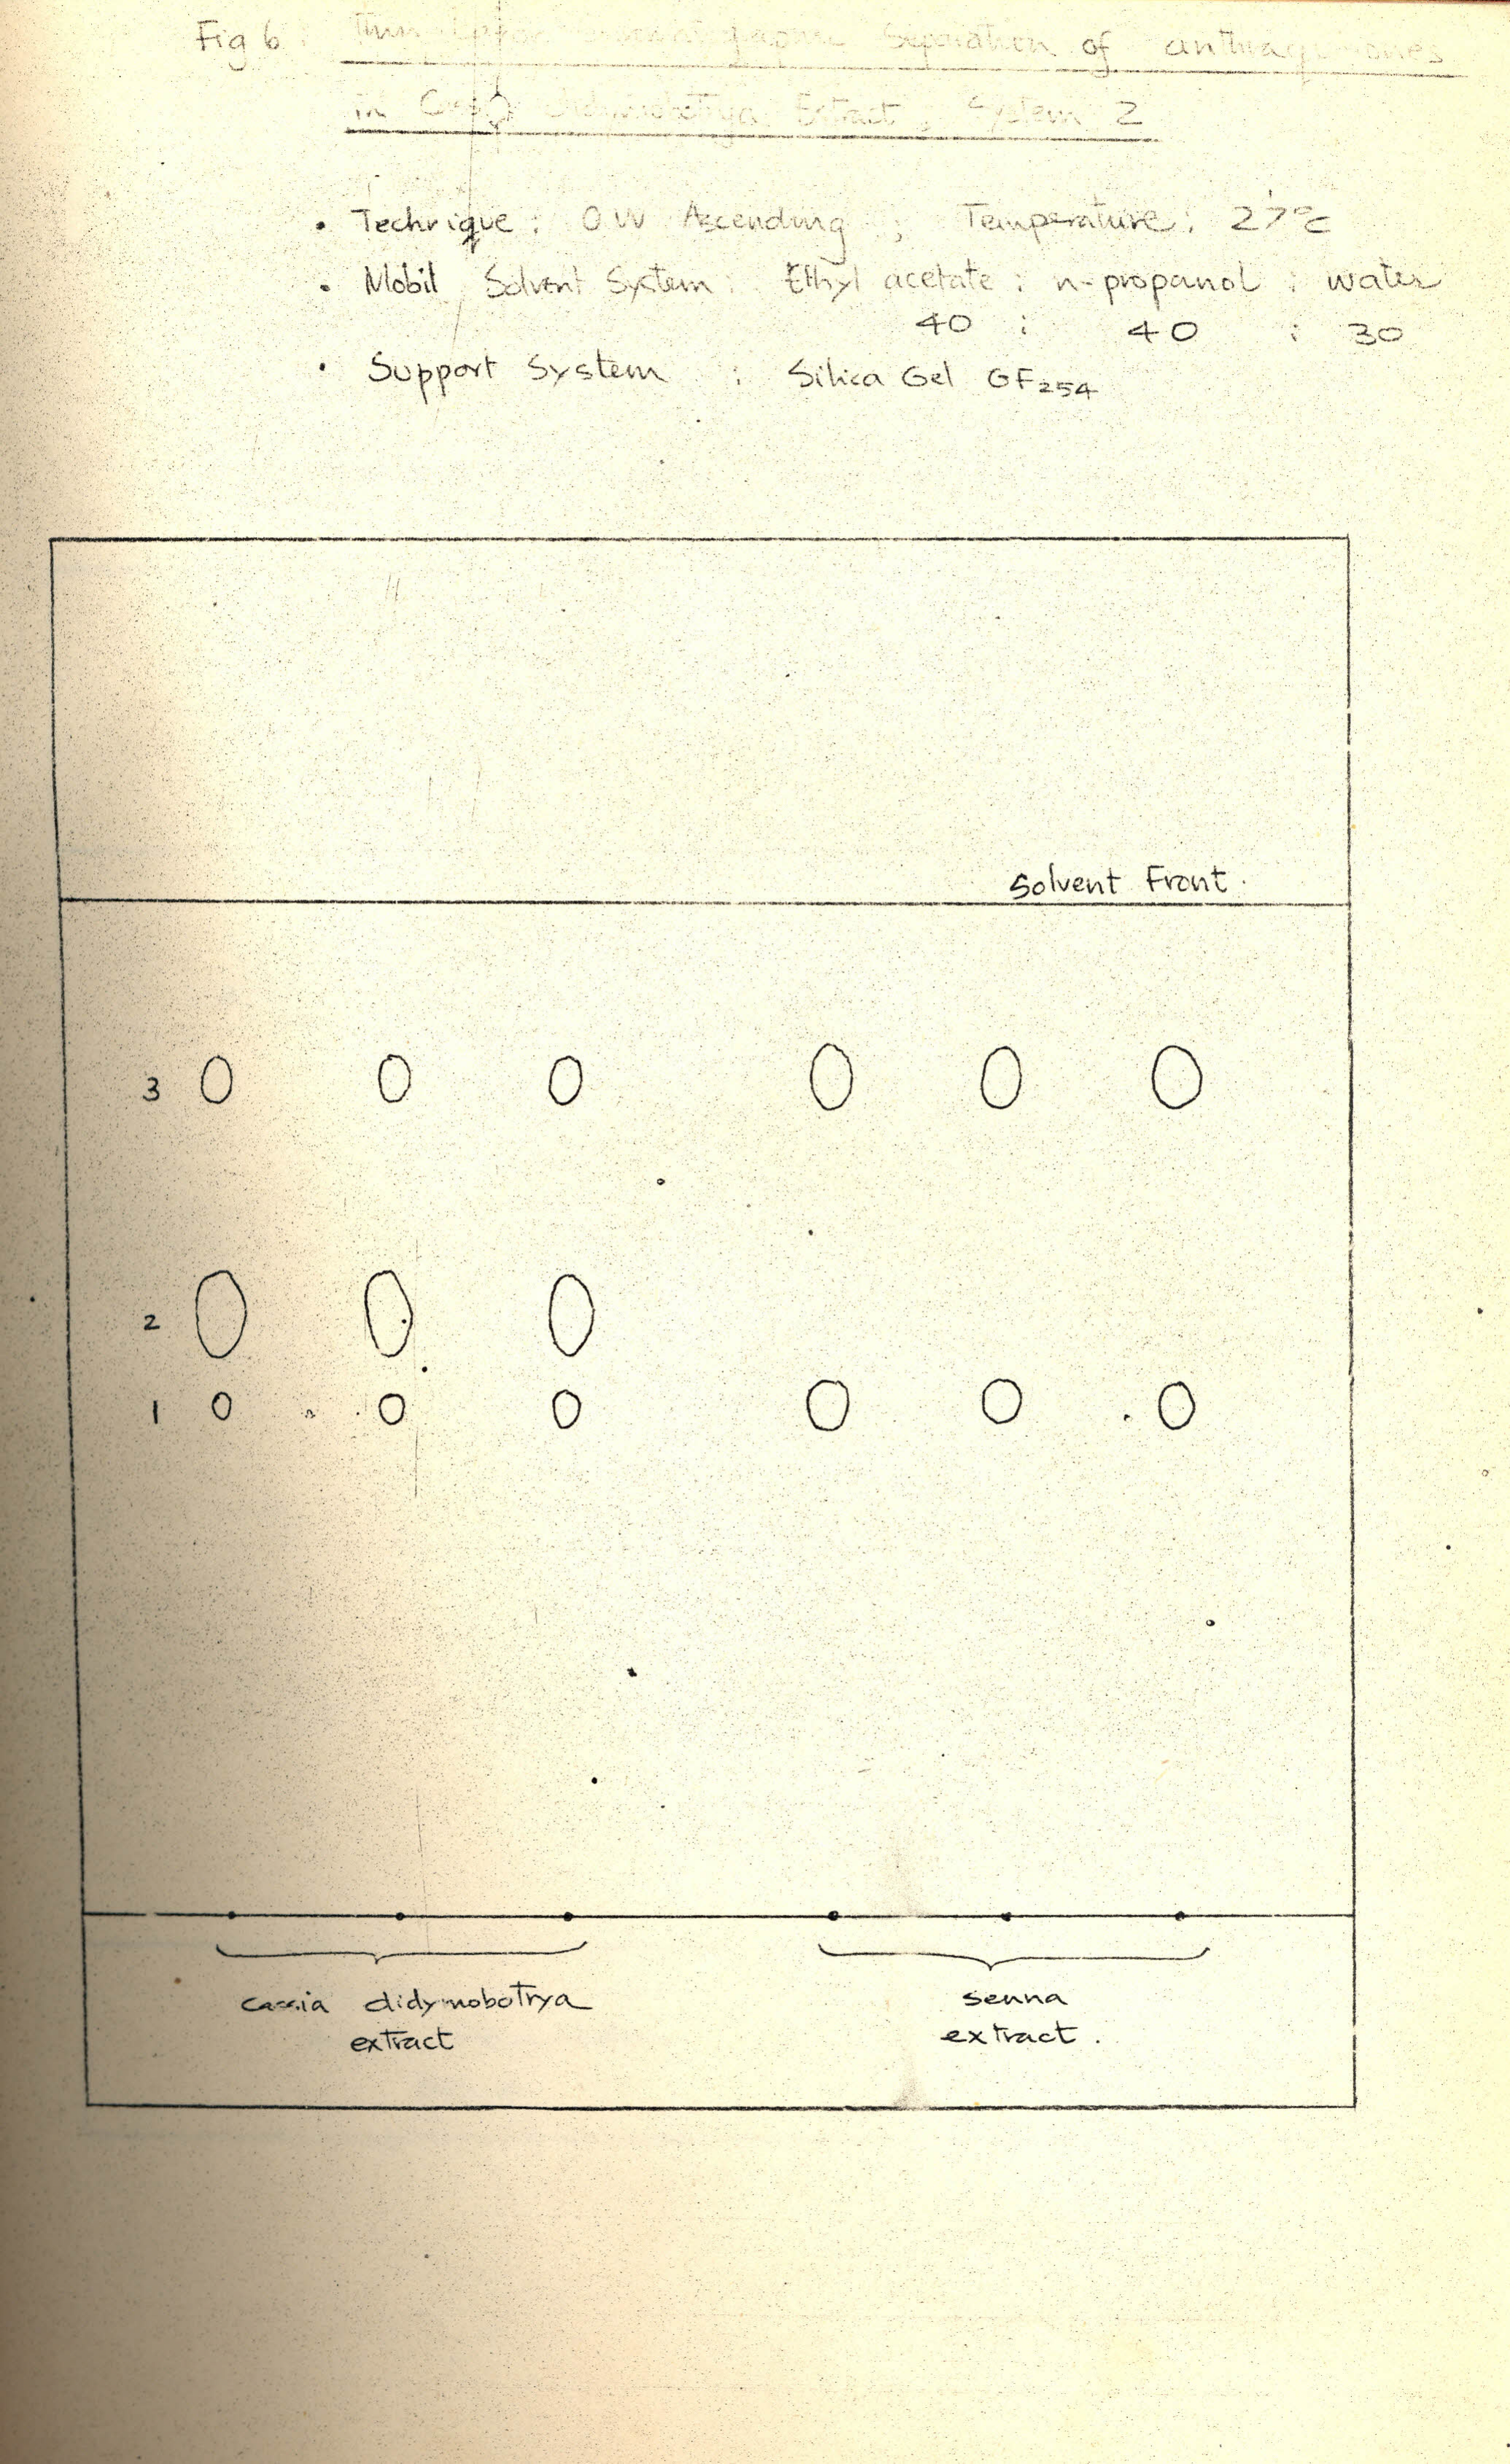 Fig 6 Thin Layer Separation of anthraquinones
in Cassia Didymobotrya Extract, System 2
• Technique: OW Ascending ; Temperature: 27°C
• Mobil Solvent System: Ethyl acetate : n-propanol : water
40 : 40 : 30
• Support System : Silica Gel GF254
Solvent Front.
3
2
1
cassia didymobotrya
extract
senna
extract.